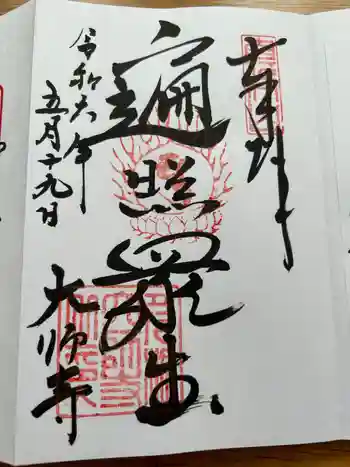 奉拝
遍照衆生
大师寺
令和六年
五月十九日